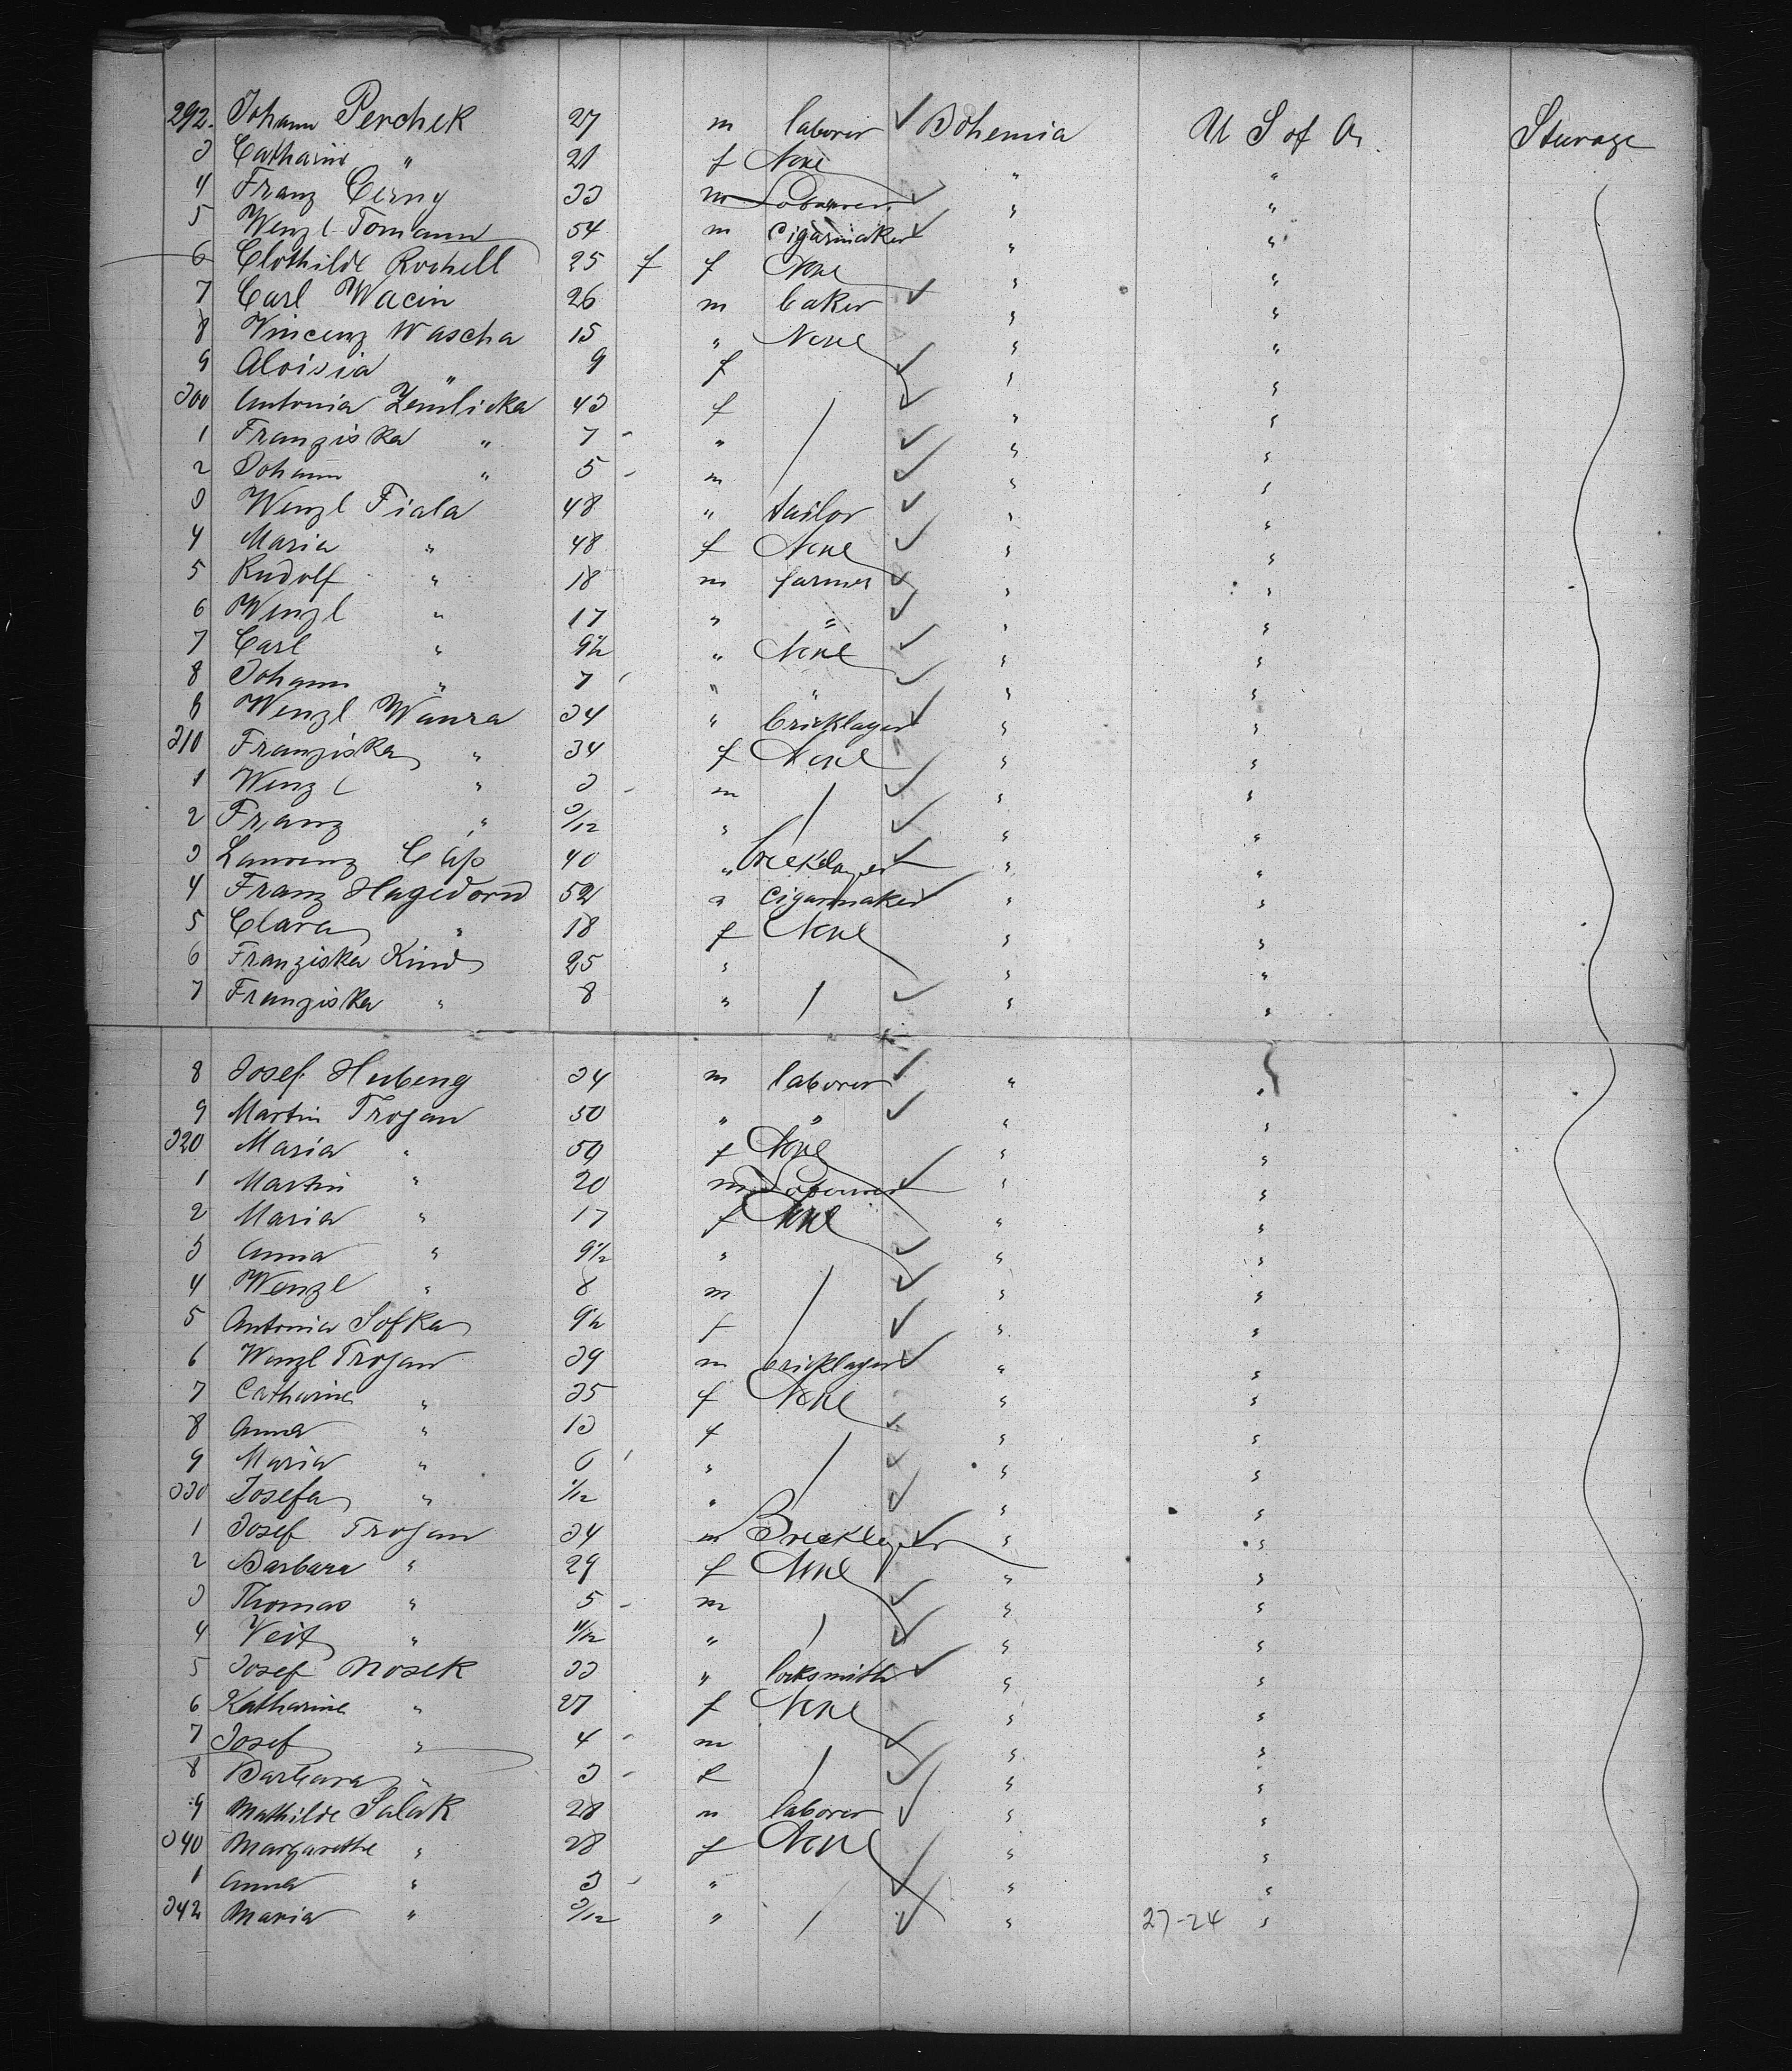 292. Johann Perchek 27 m laborer ✓ Bohemia U S of A. Steerage
3 Catharine " 21 f None " "
4 Franz Cerny 33 m Laborer ✓ " "
5 Wenzl Tomann 54 m Cigarmaker ✓ " "
6 Clothilde Rochell 25 f f None " "
7 Carl Wacin 26 m baker ✓ " "
8 Vincenz Wascha 15 " None " "
9 Aloisia " 9 f ✓ " "
300 Antonia Zemlicka 43 f / ✓ " "
1 Franziska " 7 - " ✓ " "
2 Johann " 5 - m ✓ " "
3 Wenzl Fiala 48 " tailor ✓ " "
4 Maria " 48 f None ✓ " "
5 Rudolf " 18 m farmer ✓ " "
6 Wenzl " 17 " " ✓ " "
7 Carl " 9 1/2 " None ✓ " "
8 Johann " 7 " " ✓ " "
9 Wenzl Wanra 34 " bricklayer ✓ " "
310 Franziska " 34 f None " "
1 Wenzl " 3 - m / ✓ " "
2 Franz " 3/12 " ✓ " "
3 Laurenz 40 " bricklayer ✓ " "
4 Franz Hagedorn 52 " Cigarmaker ✓ " "
5 Clara " 18 f None " "
6 Franziska Kind 25 " " "
7 Franziska " 8 " / ✓ " "
8 Josef 34 m laborer ✓ " "
9 Martin Trojan 50 " " ✓ " "
320 Maria " 50 f None " "
1 Martin " 20 m Laborer ✓ " "
2 Maria " 17 f None " "
3 Anna " 9 1/2 " ✓ " "
4 Wenzl " 8 m / ✓ " "
5 Antonia Sofka 9 1/2 f ✓ " "
6 Wenzl Trojan 39 m bricklayer ✓ " "
7 Catharine " 35 f None " "
8 Anna " 13 f ✓ " "
9 Maria " 6 " / ✓ " "
330 Josefa " 1/12 " ✓ " "
1 Josef Trojan 34 m Bricklayer ✓ " "
2 Barbara " 29 f None " "
3 Thomas " 5 - m ✓ " "
4 Veit " 11/12 " / ✓ " "
5 Josef Nosek 33 " locksmith ✓ " "
6 Katharine " 27 f None " "
7 Josef " 4 - m ✓ " "
8 Barbara " 3 - f / ✓ " "
9 Mathilde Salak 28 m laborer ✓ " "
340 Margarethe " 28 f None " "
1 Anna " 3 - " ✓ " "
342 Maria " 3/12 " / ✓ " 27-24 "